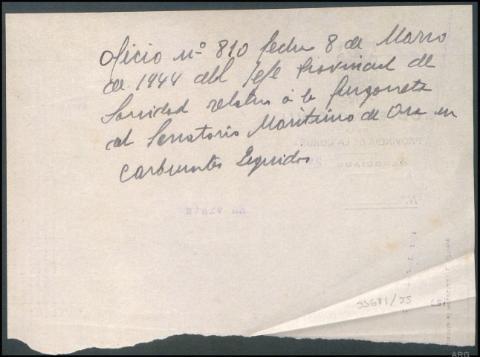 Oficio nº 810 fecha 8 de Marzo
de 1944 del Jefe Provincial de
Sanidad relativo á la furgoneta
del Sanatorio Maritimo de Oza en
Carburantes Liquidos
PROVINCIA DE LA CORUÑA
ARG